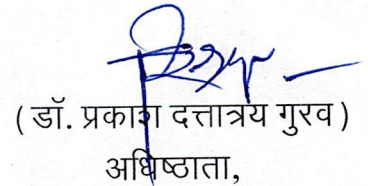 ( डॉ. प्रकाश दत्तात्रय गुरव )
अधिष्ठाता,